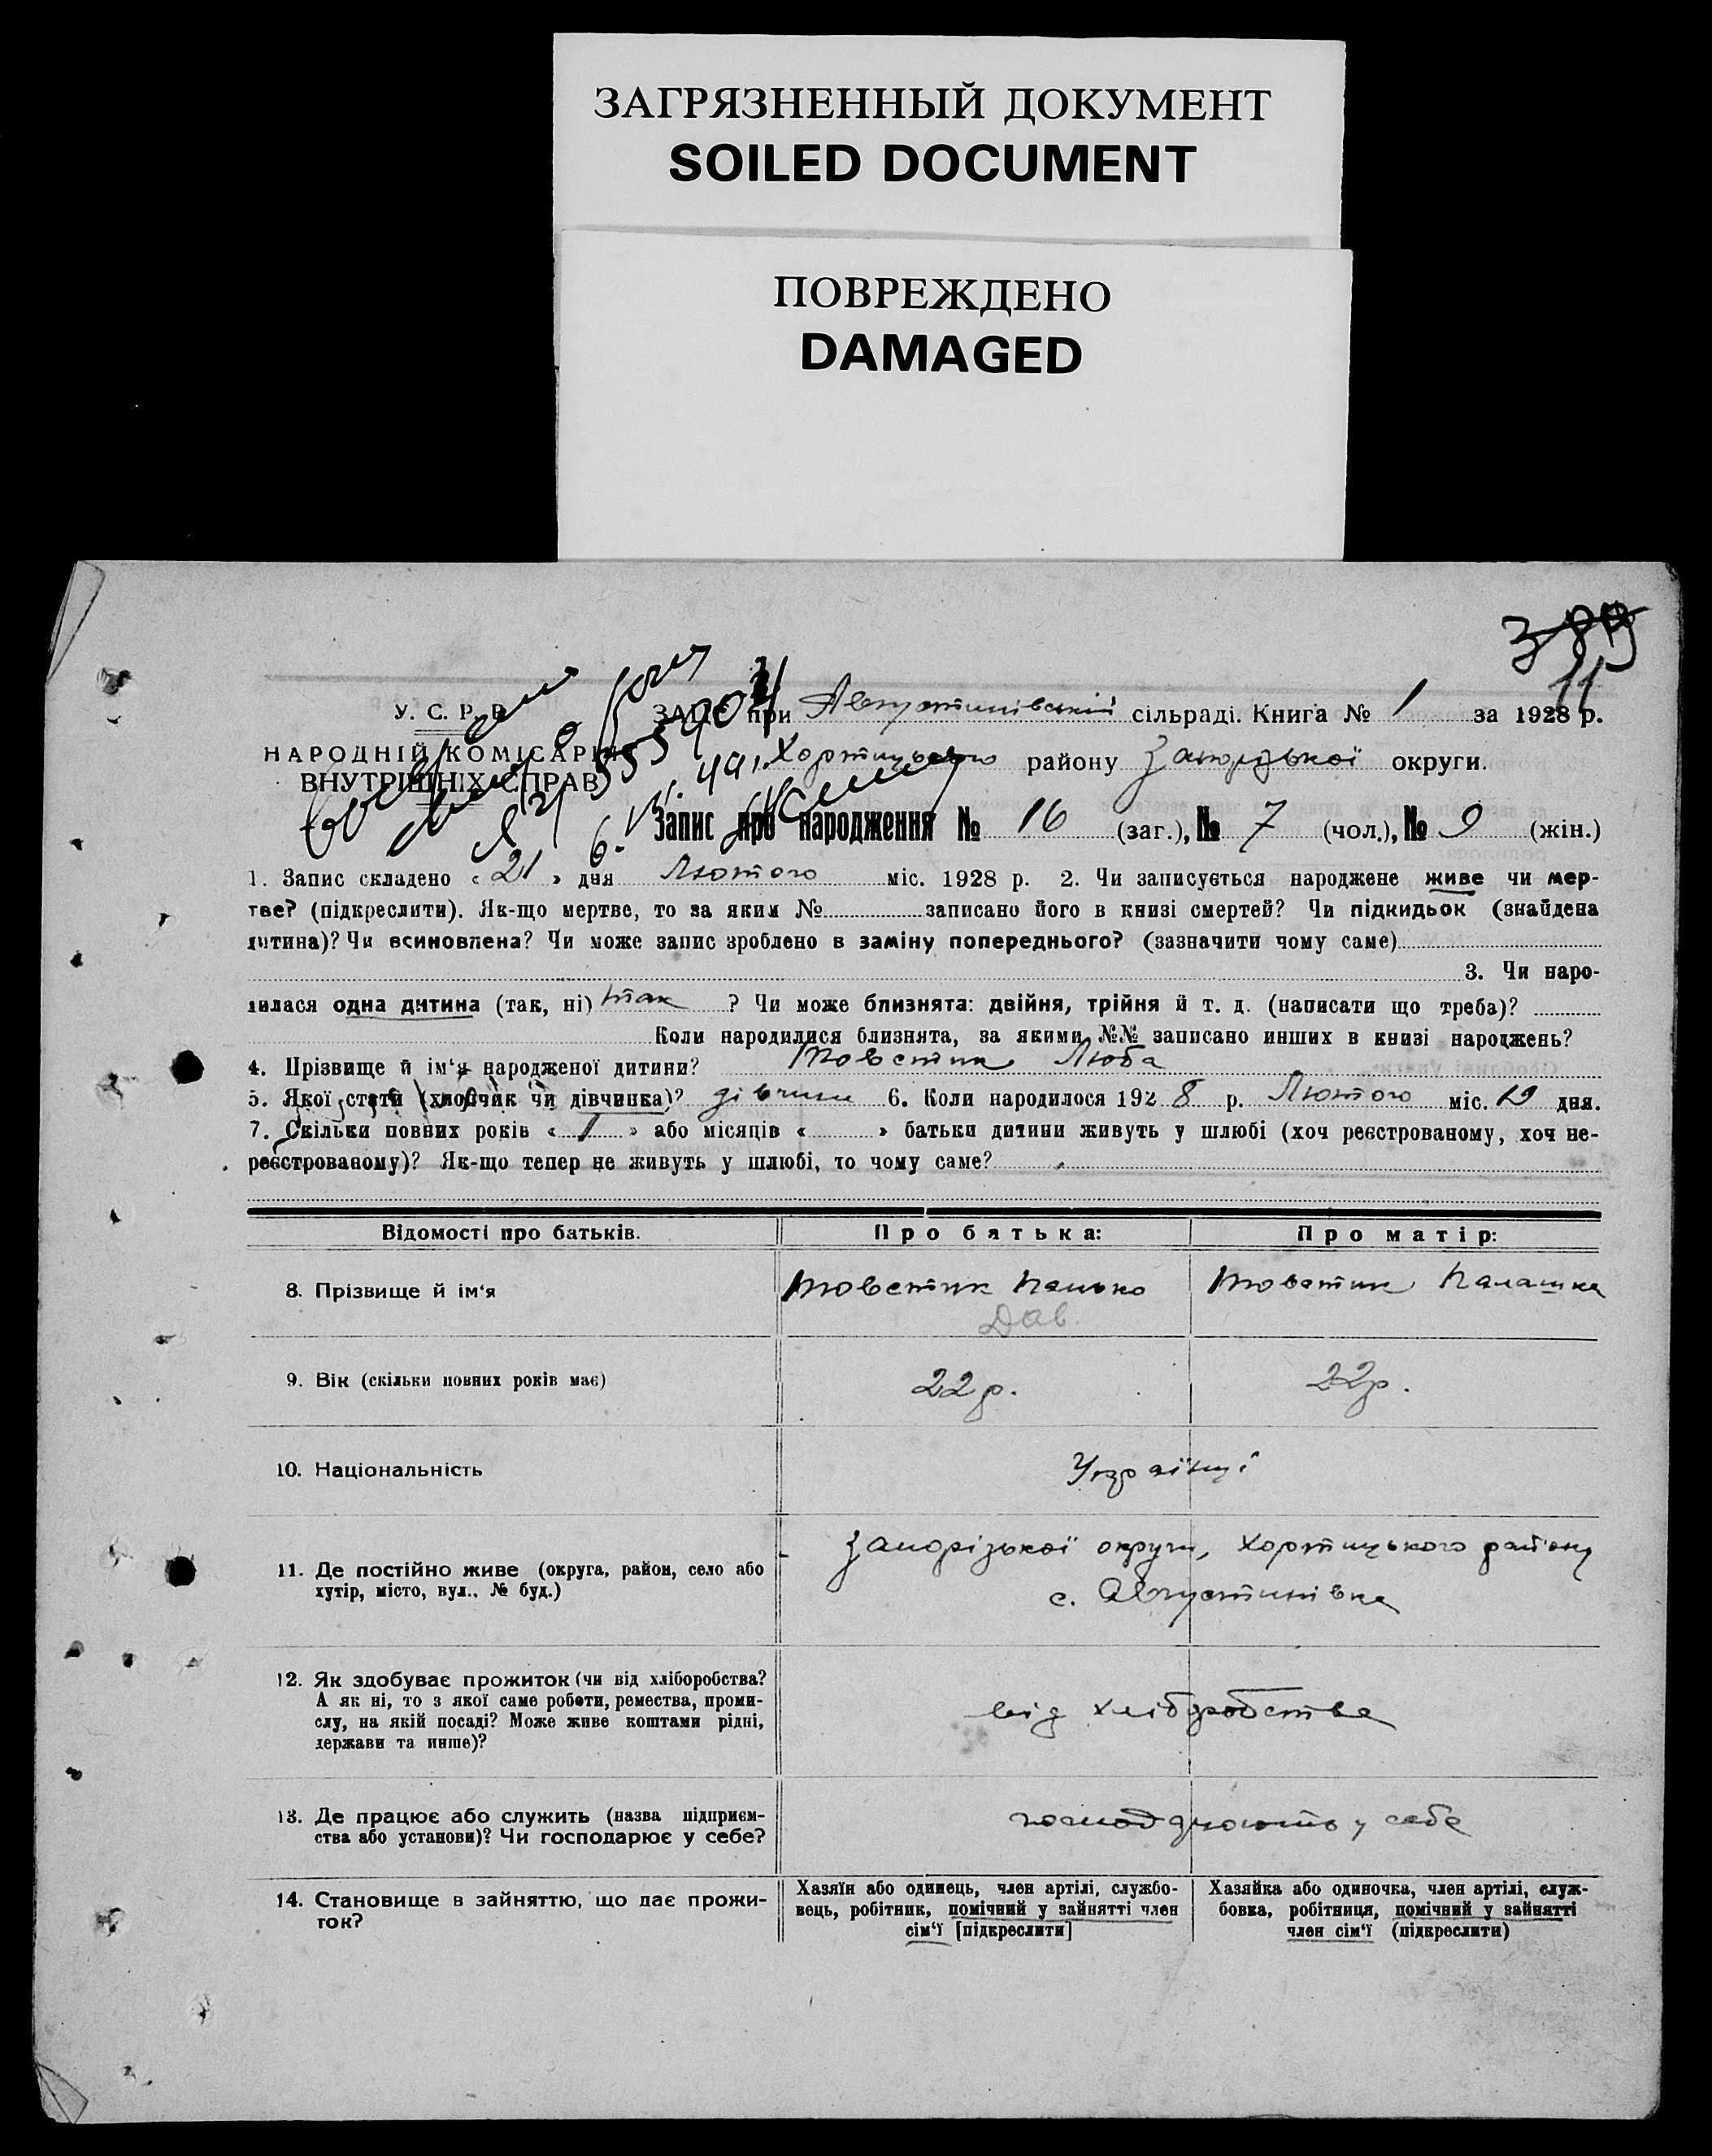 ЗАГРЯЗНЕННЫЙ ДОКУМЕНТ
SOILED DOCUMENT
ПОВРЕЖДЕНО
DAMAGED
389
11
У. С. Р. Р.
НАРОДНІЙ КОМІСАРІЯТ
ВНУТРІШНІХ СПРАВ
ЗАЦС при Августинівській сільраді. Книга № 1 за 1928 р.
Хортицького району Запорізької округи.
Запис про народження № 16 (заг.), № 7 (чол.), № 9 (жін.)
1. Запис складено « 21 » дня Лютого міс. 1928 р. 2. Чи записується народжене живе чи мер-
тве? (підкреслити). Як-що мертве, то за яким № записано його в книзі смертей? Чи підкидьок (знайдена
дитина)? Чи всиновлена? Чи може запис зроблено в заміну попереднього? (зазначити чому саме)
3. Чи наро-
дилася одна дитина (так, ні) так ? Чи може близнята: двійня, трійня й т. д. (написати що треба)?
Коли народилися близнята, за якими №№ записано инших в книзі народжень?
4. Прізвище й ім‘я народженої дитини? Товстик Люба
5. Якої стати (хлопчик чи дівчинка)? дівчина 6. Коли народилося 192 8 р. Лютого міс. 19 дня.
7. Скільки повних років « 1 » або місяців « » батьки дитини живуть у шлюбі (хоч реєстрованому, хоч не-
реєстрованому)? Як-що тепер не живуть у шлюбі, то чому саме?
Відомості про батьків. Про батька: Про матір:
8. Прізвище й ім‘я Товстик Панько Товстик Палашка
Дав.
9. Вік (скільки повних років має) 22 р. 22 р.
10. Національність Українці
11. Де постійно живе (округа, район, село або
хутір, місто, вул., № буд.)
Запорізької округи, Хортицького району
с. Августинівка
12. Як здобуває прожиток (чи від хліборобства?
А як ні, то з якої саме роботи, ремества, проми-
слу, на якій посаді? Може живе коштами рідні,
держави та инше)?
від хліборобства
13. Де працює або служить (назва підприєм-
ства або установи)? Чи господарює у себе?
у себе
14. Становище в зайняттю, що дає прожи-
ток?
Хазяїн або одинець, член артілі, службо-
вець, робітник, помічний у зайнятті член
сім‘ї [підкреслити]
Хазяйка або одиночка, член артілі, служ-
бовка, робітниця, помічний у зайнятті
член сім‘ї (підкреслити)